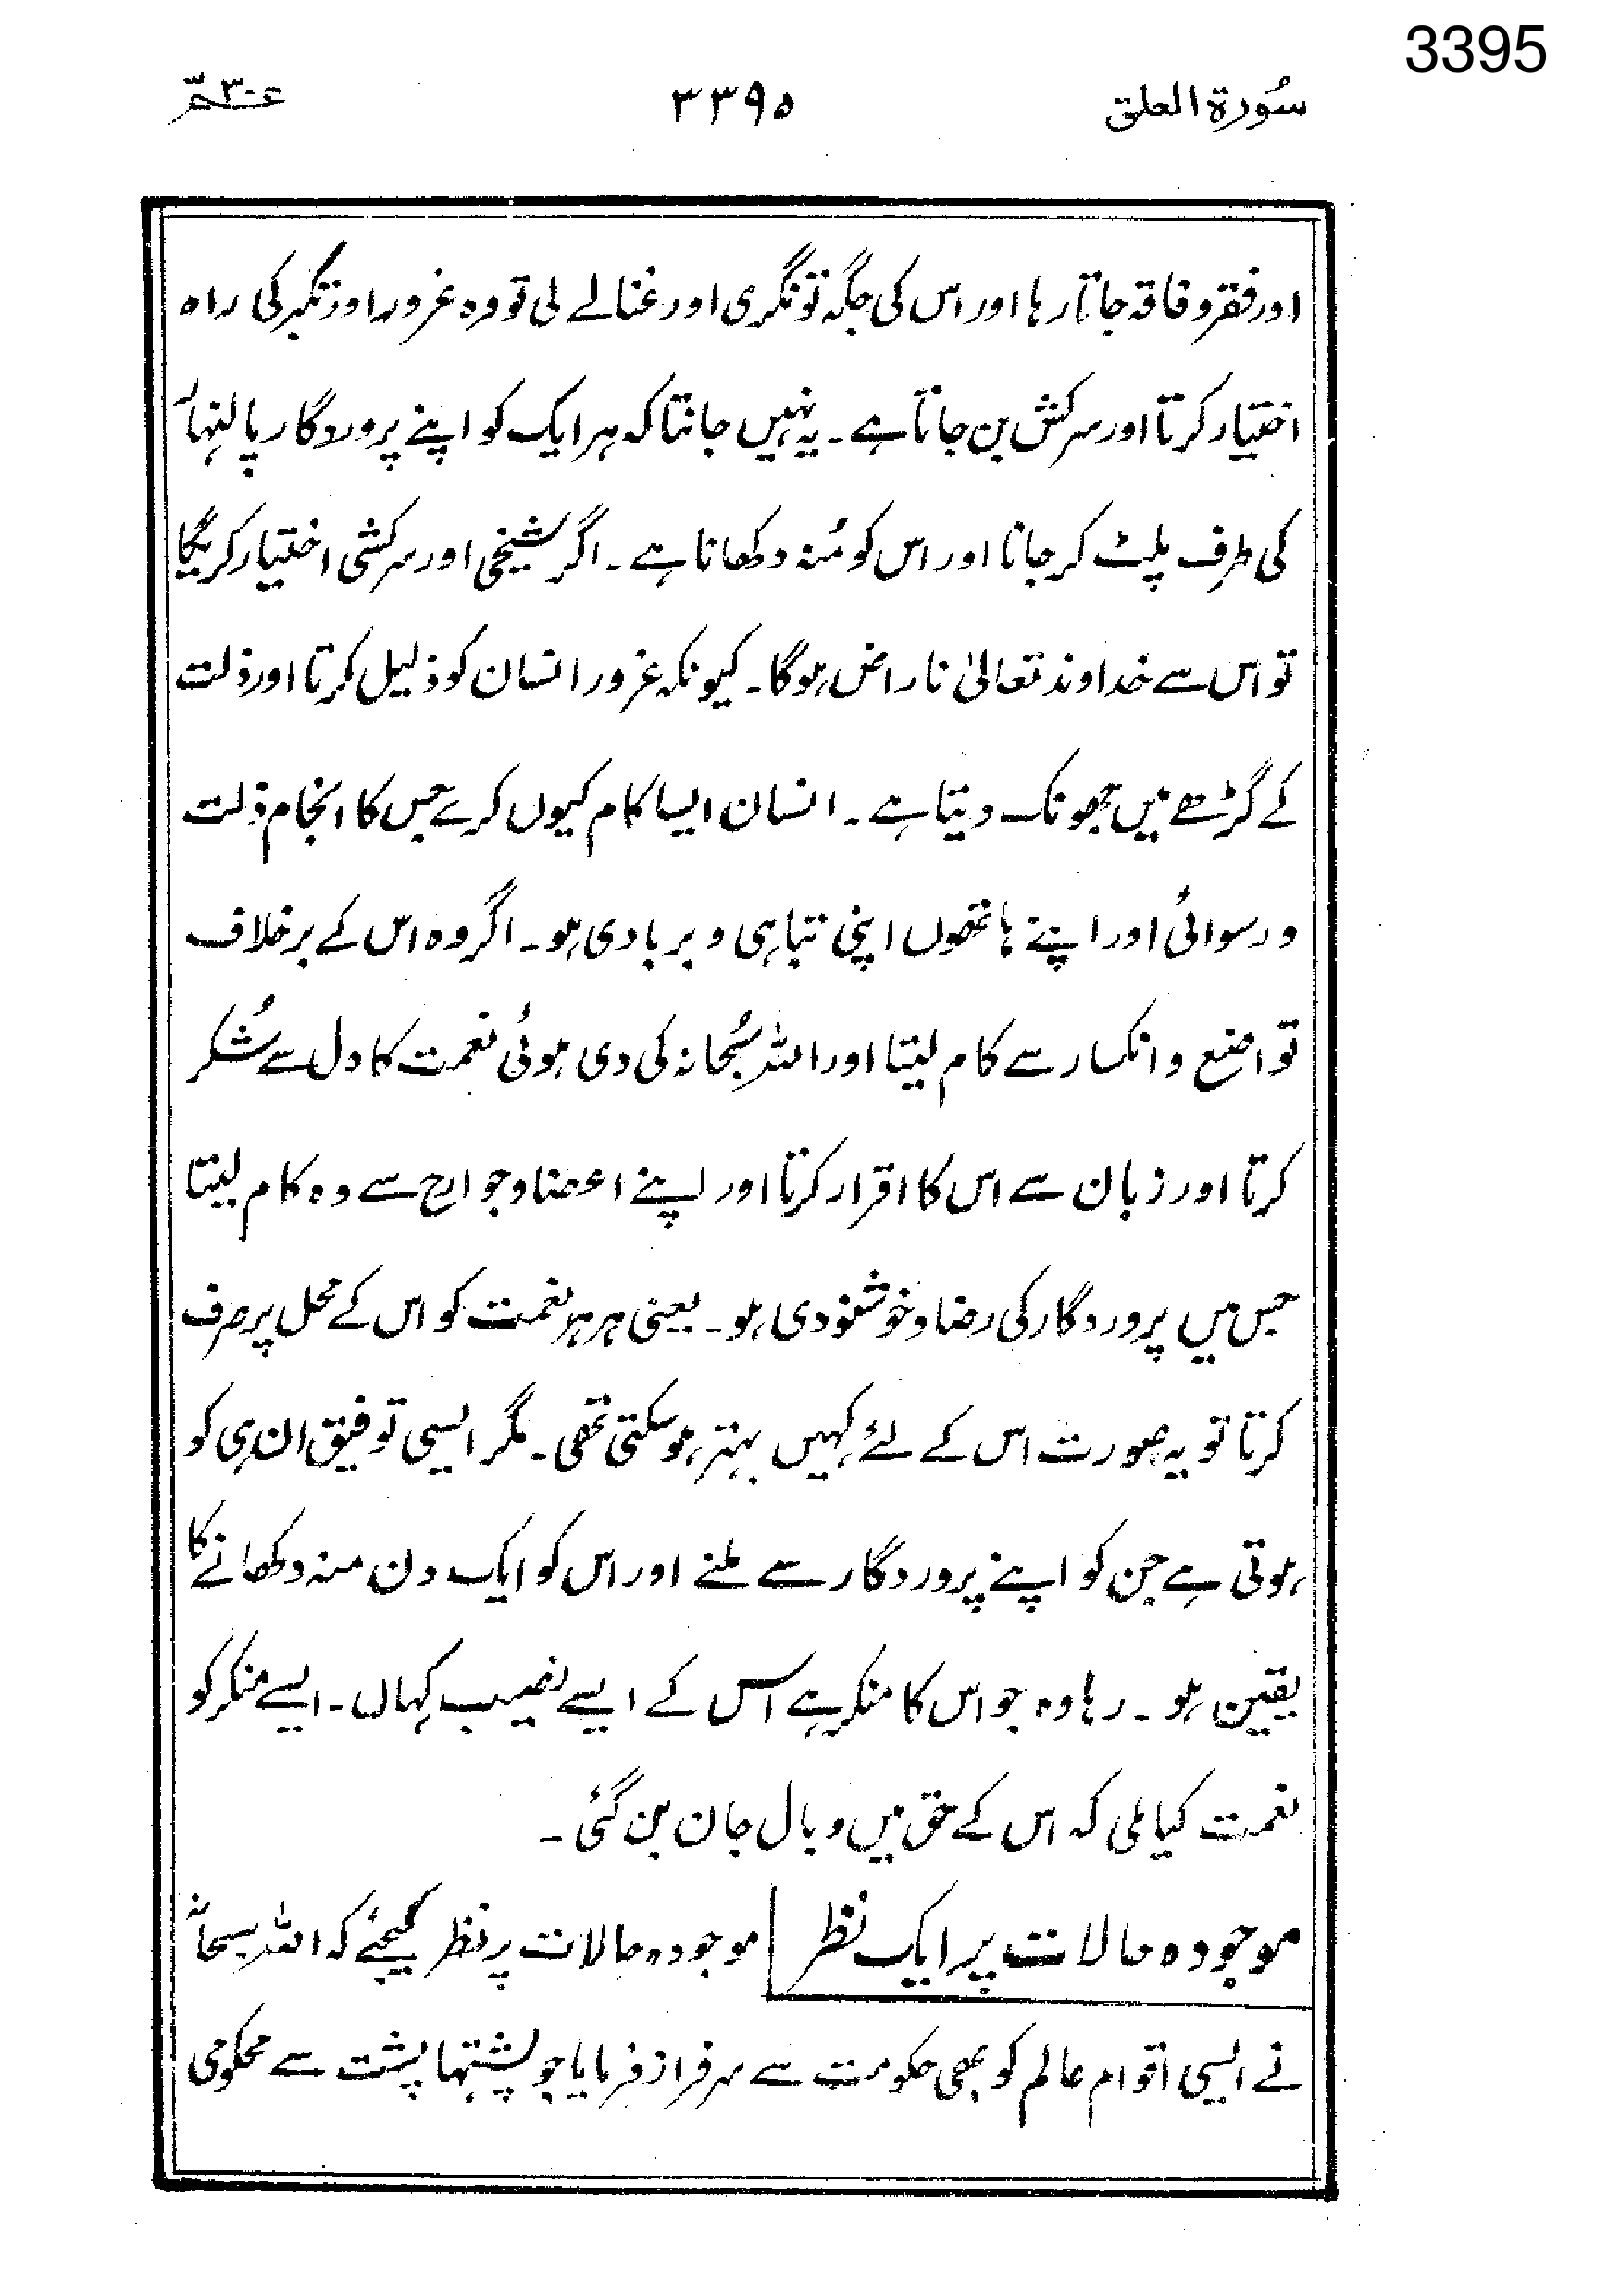 3395
سُورۃ العلق ۳۳۹۵ عمّ ۳۰
اور فقر و فاقہ جاتا رہا اور اس کی جگہ تونگری اور غنا لے لی تو وہ غرور اور تکبر کی راہ
اختیار کرتا اور سرکش بن جاتا ہے ۔ یہ نہیں جانتا کہ ہر ایک کو اپنے پروردگار پالنہار
کی طرف پلٹ کر جانا اور اس کو مُنہ دکھانا ہے ۔ اگر شیخی اور سرکشی اختیار کریگا
تو اس سے خداوند تعالیٰ ناراض ہوگا ۔ کیونکہ غرور انسان کو ذلیل کرتا اور ذلت
کے گڑھے میں جھونک دیتا ہے ۔ انسان ایسا کام کیوں کرے جس کا انجام ذلت
و رسوائی اور اپنے ہاتھوں اپنی تباہی و بربادی ہو ۔ اگر وہ اس کے برخلاف
تواضع و انکسار سے کام لیتا اور اللہ سُبحانہ کی دی ہوئی نعمت کا دل سے شُکر
کرتا اور زبان سے اس کا اقرار کرتا اور اپنے اعضا و جوارح سے وہ کام لیتا
جس میں پروردگار کی رضا و خوشنودی ہو ۔ یعنی ہر ہر نعمت کو اس کے محل پر صرف
کرتا تو یہ صورت اس کے لئے کہیں بہتر ہوسکتی تھی ۔ مگر ایسی توفیق ان ہی کو
ہوتی ہے جن کو اپنے پروردگار سے ملنے اور اس کو ایک دن منہ دکھانے کا
یقین ہو ۔ رہا وہ جو اس کا منکر ہے اس کے ایسے نصیب کہاں ۔ ایسے منکر کو
نعمت کیا ملی کہ اس کے حق میں وبال جان بن گئی ۔
موجودہ حالات پر ایک نظر موجودہ حالات پر نظر کیجئے کہ اللہ سبحانہ
نے ایسی اقوام عالم کو بھی حکومت سے سرفراز فرمایا جو پشتہا پشت سے محکومی